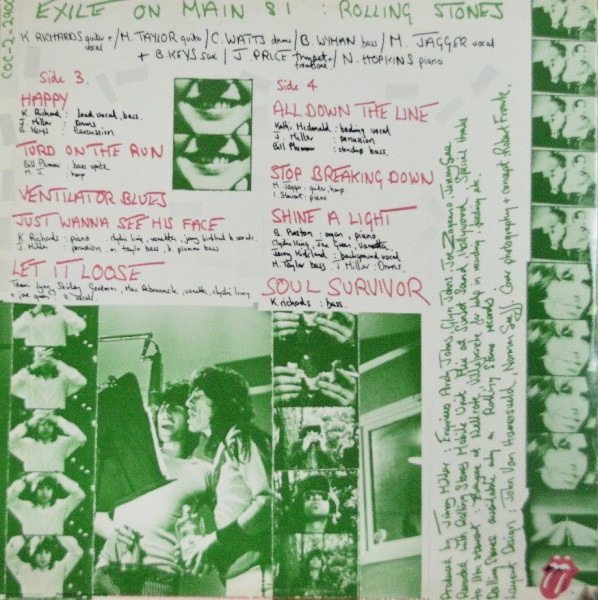 EXILE ON MAIN ST : ROLLING STONES
COC-2-2900
K RICHARDS guitar + / M. TAYLOR guitar / C. WATTS drums / B. WYMAN bass / M. JAGGER vocal
vocal
+ B. KEYS sax / J. PRICE trumpet trombone / N. HOPKINS piano
Side 3.
HAPPY
K. Richard : lead vocal, bass.
J. Miller : Drums
B. Keys : Percussion
TURD ON THE RUN
Bill Plummer : bass
M. J. : harp
VENTILATOR BLUES
JUST WANNA SEE HIS FACE
K Richards : piano clydie King, vanetta, jerry kirkland b. vocals.
J Miller : percussion m. taylor bass, b. plummer bass
LET IT LOOSE
Tami Lynn, Shirley Goodman, Mac Rebennack, vanetta, clydie king
+ joe green : b. vocals
Side 4
ALL DOWN THE LINE
Kathi Mcdonald : backing vocal
J. Miller : percussion
Bill Plummer : standup bass.
STOP BREAKING DOWN
M. Jagger : guitar, harp
I. Stewart : piano
SHINE A LIGHT
B. Preston : organ, piano
Clydie King, Joe Green, Vanetta,
Jerry Kirkland : background vocal
M. Taylor bass J. Miller : Drums.
SOUL SURVIVOR
K. richards : bass.
Produced by Jimmy Miller : Engineers Andy Johns, Glyn Johns, Joe Zagarino, Jeremy Gee
Recorded with Rolling Stones Mobile Unit &
Sunset Sound, Hollywood. Special thanks
to
Rolling Stones available only on Rolling Stones records
Layout Design : John Van Hamersveld, Norman Seeff : Cover photography + concept Robert Frank.